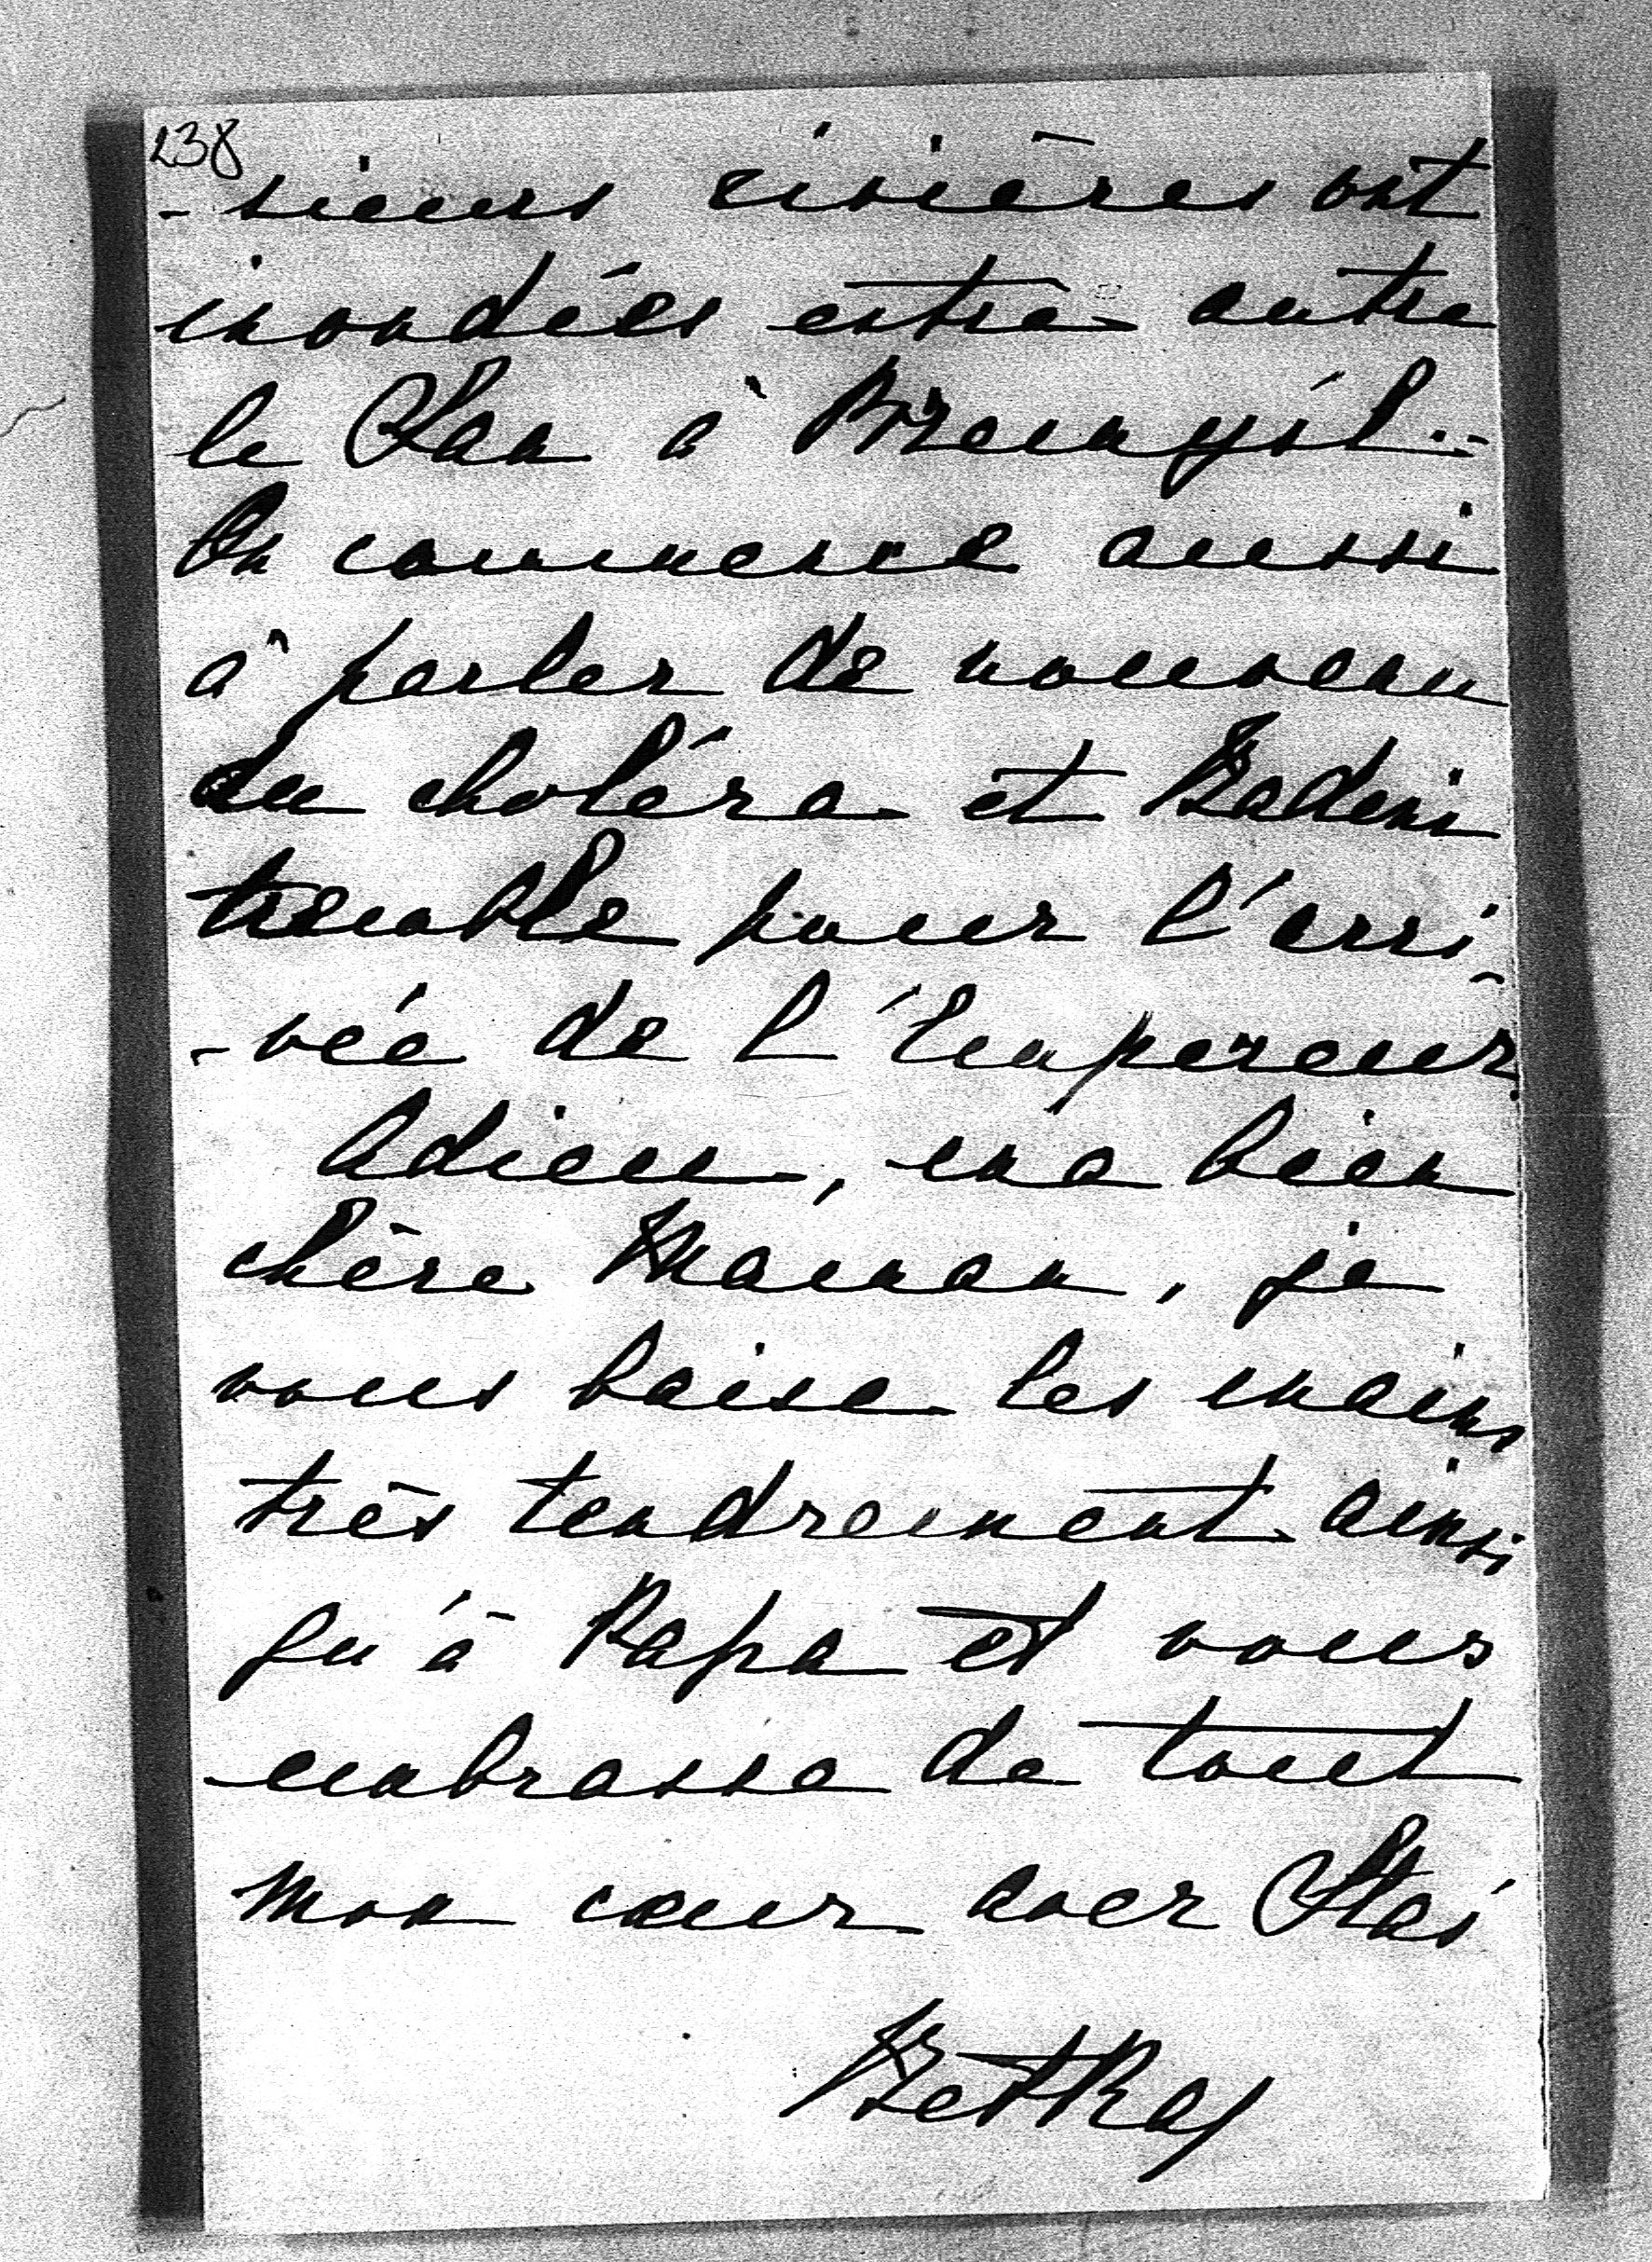 238
- sieurs rivières ont
inondées entre autre
le San à Przemyśl.-
On commence aussi
à parler de nouveau
du choléra et Badeni
tremble pour l'arri-
- vée de l'Empereur.
Adieu, ma bien
chère Maman, je
vous baise les mains
très tendrement ainsi
qu'à Papa et vous
embrasse de tout
mon cœur avec Staś
Betka